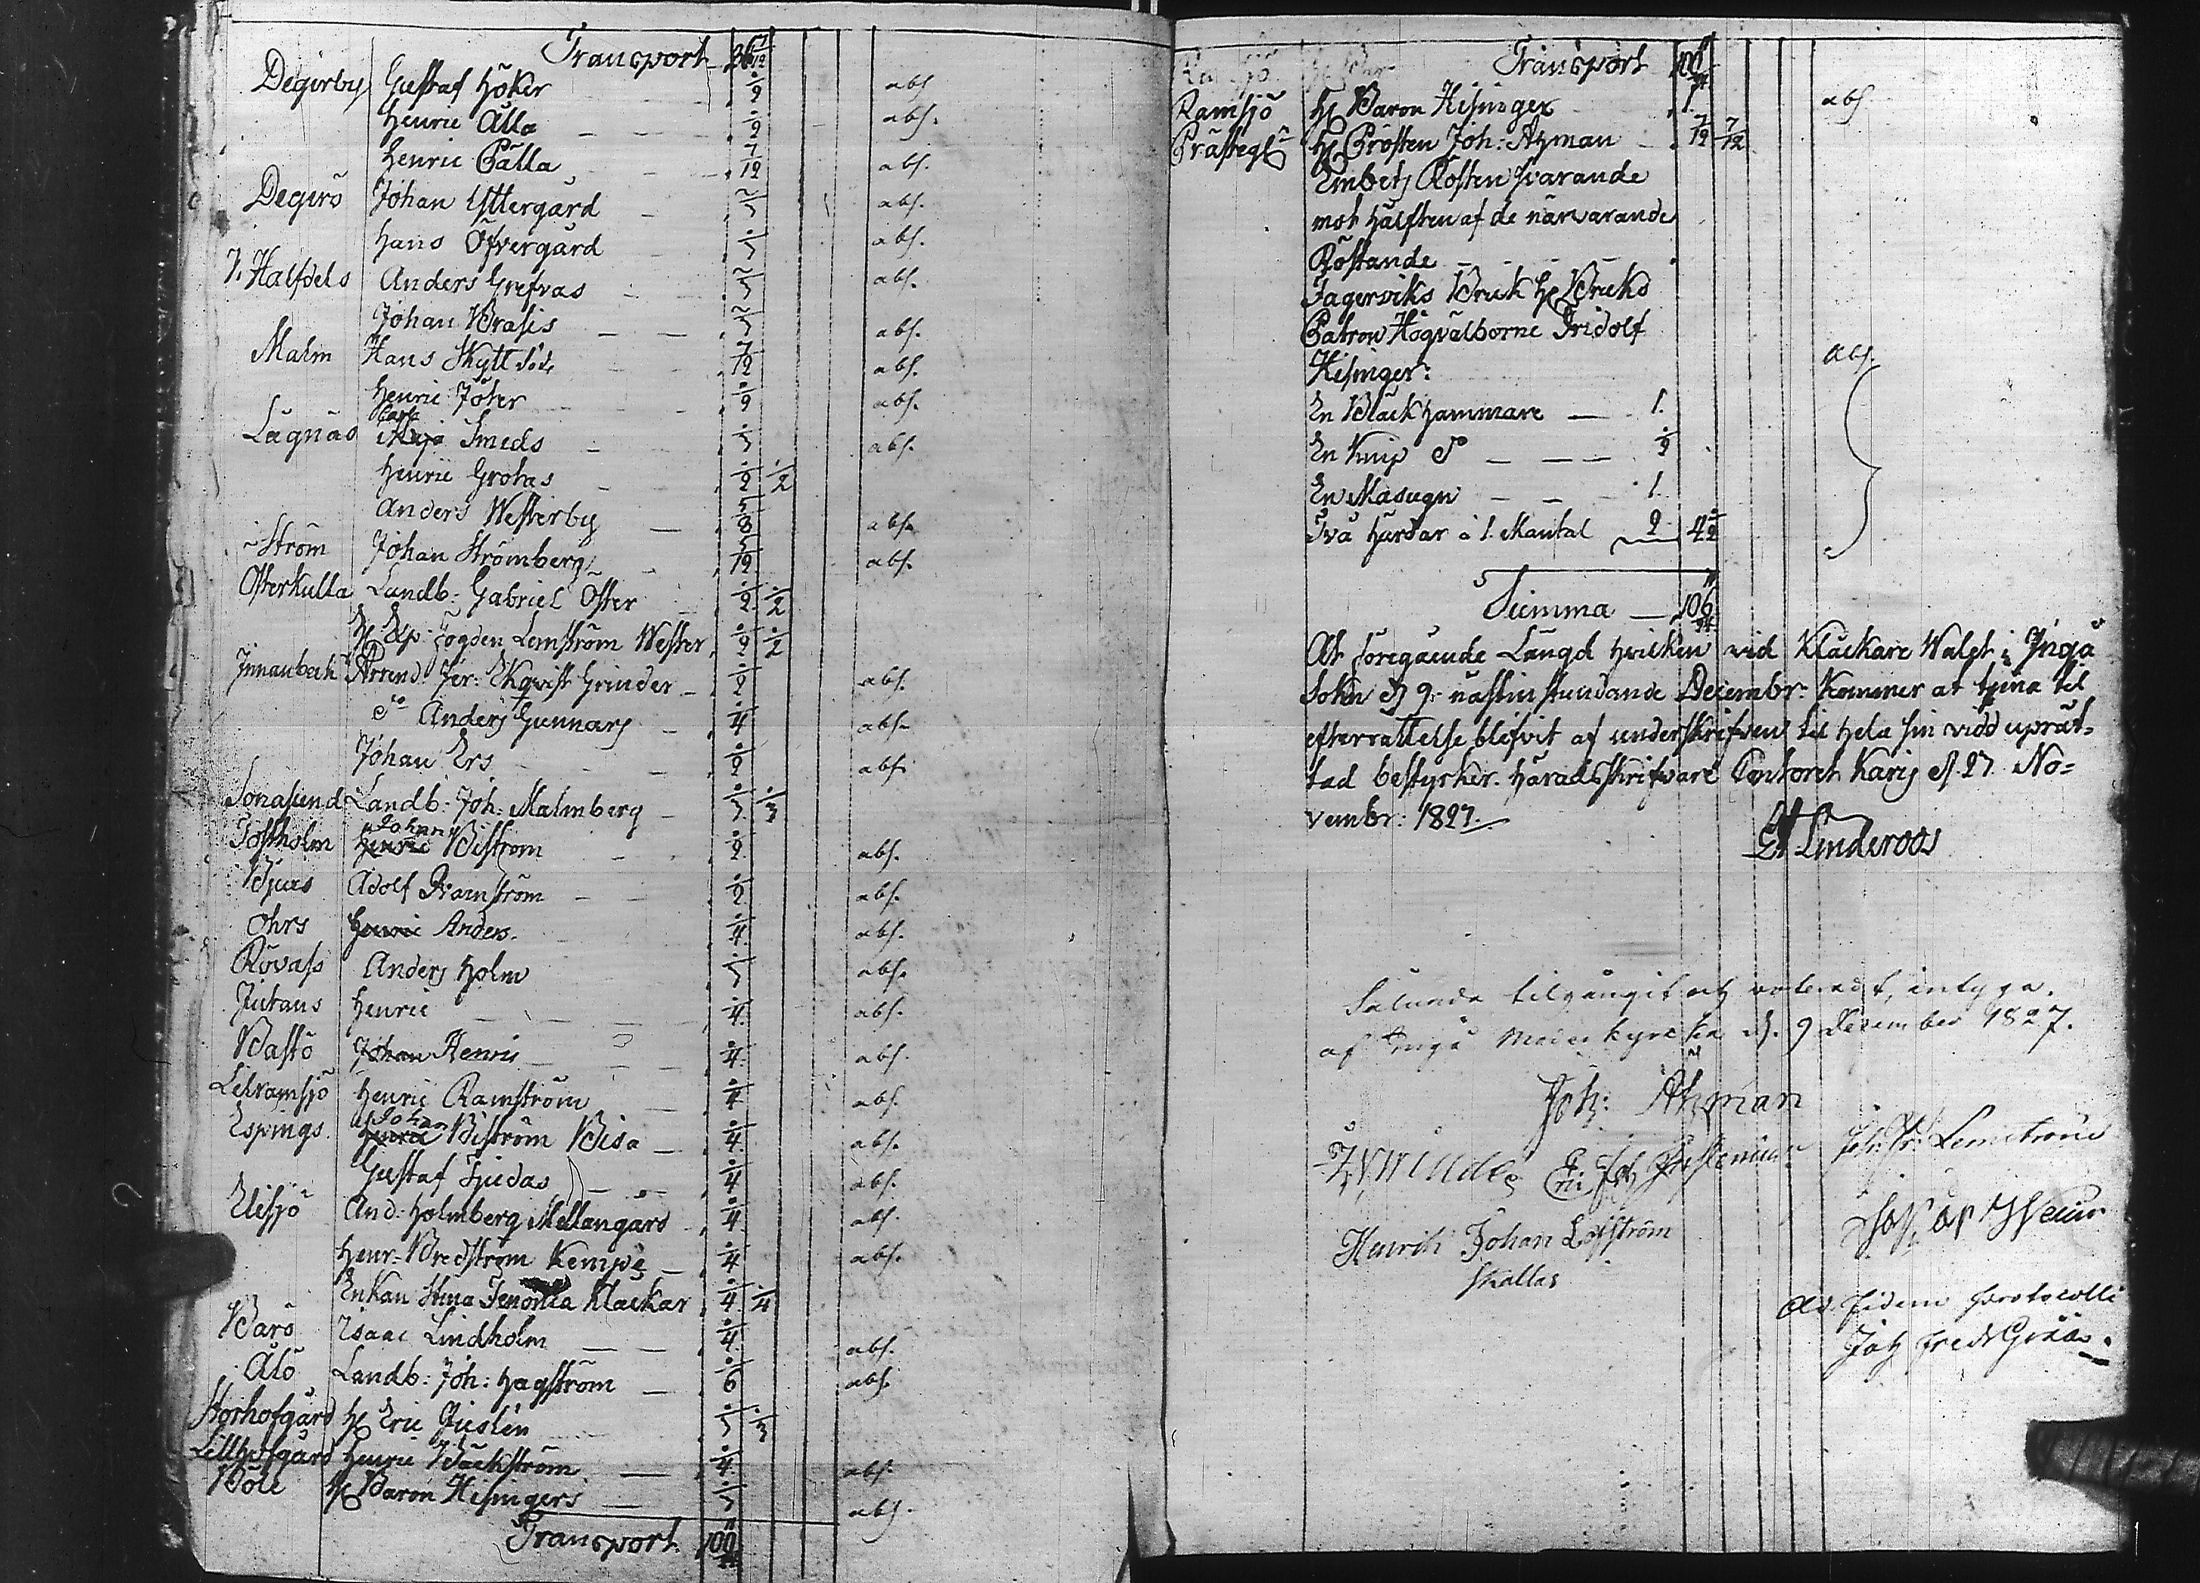 Transport 86 7/12
Degerby Gustaf Höker 1/2 abs.
Henric Alla 1/2 abs.
Henric Pälla 7/12 abs.
Degerö Johan Yttergård 2/3 abs.
Hans Öfvergård 1/3 abs.
V. Halfdels Anders Grefvas 2/3 abs.
Johan Brasis abs.
Malm Hans Skytt 7/12 abs.
Henric Joher 1/2 abs.
Lågnäs Carl Smeds 1/3 abs.
Henric Grohas 1/2 1/2
Anders Westerby 5/8 abs.
Ström Johan Strömberg 5/12 abs.
Österkulla Landb: Gabriel Öster 1/2 1/2
Hr Exp. Fogden Lemström Wester 1/2 1/2
Innanbäck Arrend. Jer: Ekqvist Grinder 1/2 abs.
do Anders Gunnars 1/4 abs.
Johan Ers 1/2 abs.
Jonasund Landb: Joh: Malmberg 1/3 1/3
Tostholm Johan Biström 1/2 abs.
Bjurs Adolf Qvarnström 1/2 abs.
Ohrs Henric Anders. 1/4 abs.
Rövass Anders Holm 1/3 abs.
Jutans Henric 1/4 abs.
Bastö Johan Henric 1/4 abs.
Lillramsjö Henric Ramström 1/4 abs.
Espings Johan Biström Bisa 1/4 abs.
Gustaf Tjudas 1/4 abs.
Elisjö And: Holmberg Mellangård 1/4 abs.
Henr: Bredström Kempe 1/4 abs.
Enkan Stina Klackar 1/4 1/4
Barö Isaac Lindholm 1/4 abs.
Älö Landb: Joh: Hagström 1/6 abs.
Storhofgård Hr Eric Justén 1/3 1/3
Lillhofgård Henric Bäckström 1/4 abs.
Böle Hr Baron Hisingers 1/3 abs.
Transport 100 11/24
Transport 100 11/24
Ramsjö Hr Baron Hisinger 1. abs.
Prästegln Hr Prosten Joh: Ahman 7/12 7/12
Embets Rösten svarande
mot hälften af de närvarande
Röstande
Fagerviks Bruk Hr Bruks
Patron Högvälborne Fridolf
Hisinger: abs.
En Bläckhammare 1.
En Knip do 1/2
En Masugn 1.
Två härdar à 1. Mantal 2 4 1/2
Summa 106
At foregående Längd hvilken vid Klåckare Walet i Ingå
Sokn d. 9. nästinstundande Decembr: kommer at tjena til
efterrättelse blifvit af underskrifven til hela sin vidd uprät-
tad bestyrker. Häradsskrifvare Contoret Karis d. 27. No-
vembr: 1827.
Linderoos
Sålunda tilgångit och voteradt, intyga.
af Ingå Moderkyrcka d. 9 December 1827.
Joh: Ahman
Joh: Fr: Lemström
Henrik Johan Löfström
Skallas
Ad fidem protocolli
Joh Fredr Gräas.